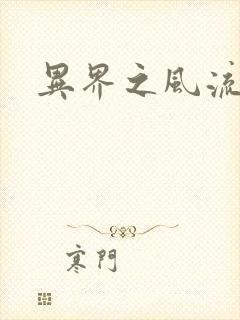 異界之風流
寒門